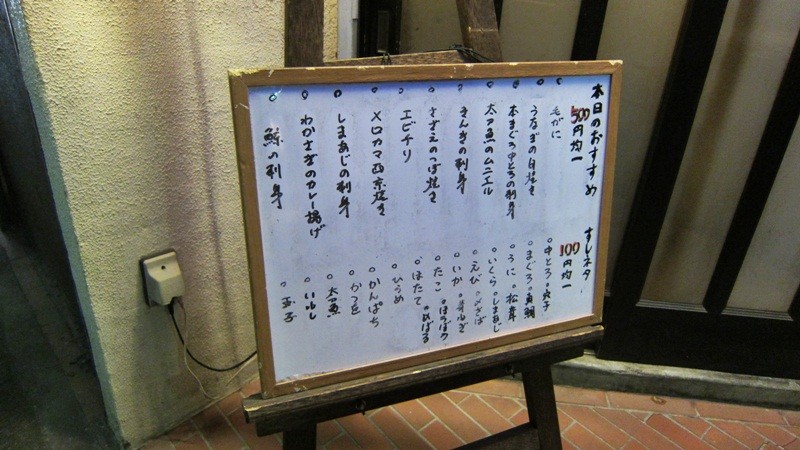 本日のおすすめ
500円均一
毛がに
うなぎの白焼き
本まぐろ中とろの刺身
太刀魚のムニエル
きんきの刺身
さざえのつぼ焼き
エビチリ
メロカマ西京焼き
しまあじの刺身
わかさぎのカレー揚げ
鯨の刺身
すしネタ
100円均一
中とろ 穴子
まぐろ 真鯛
うに
いくら しまあじ
えび 〆さば
いか
たこ ほっき
めばる
ほたて
ひらめ
かんぱち
かつを
太刀魚
いわし
玉子